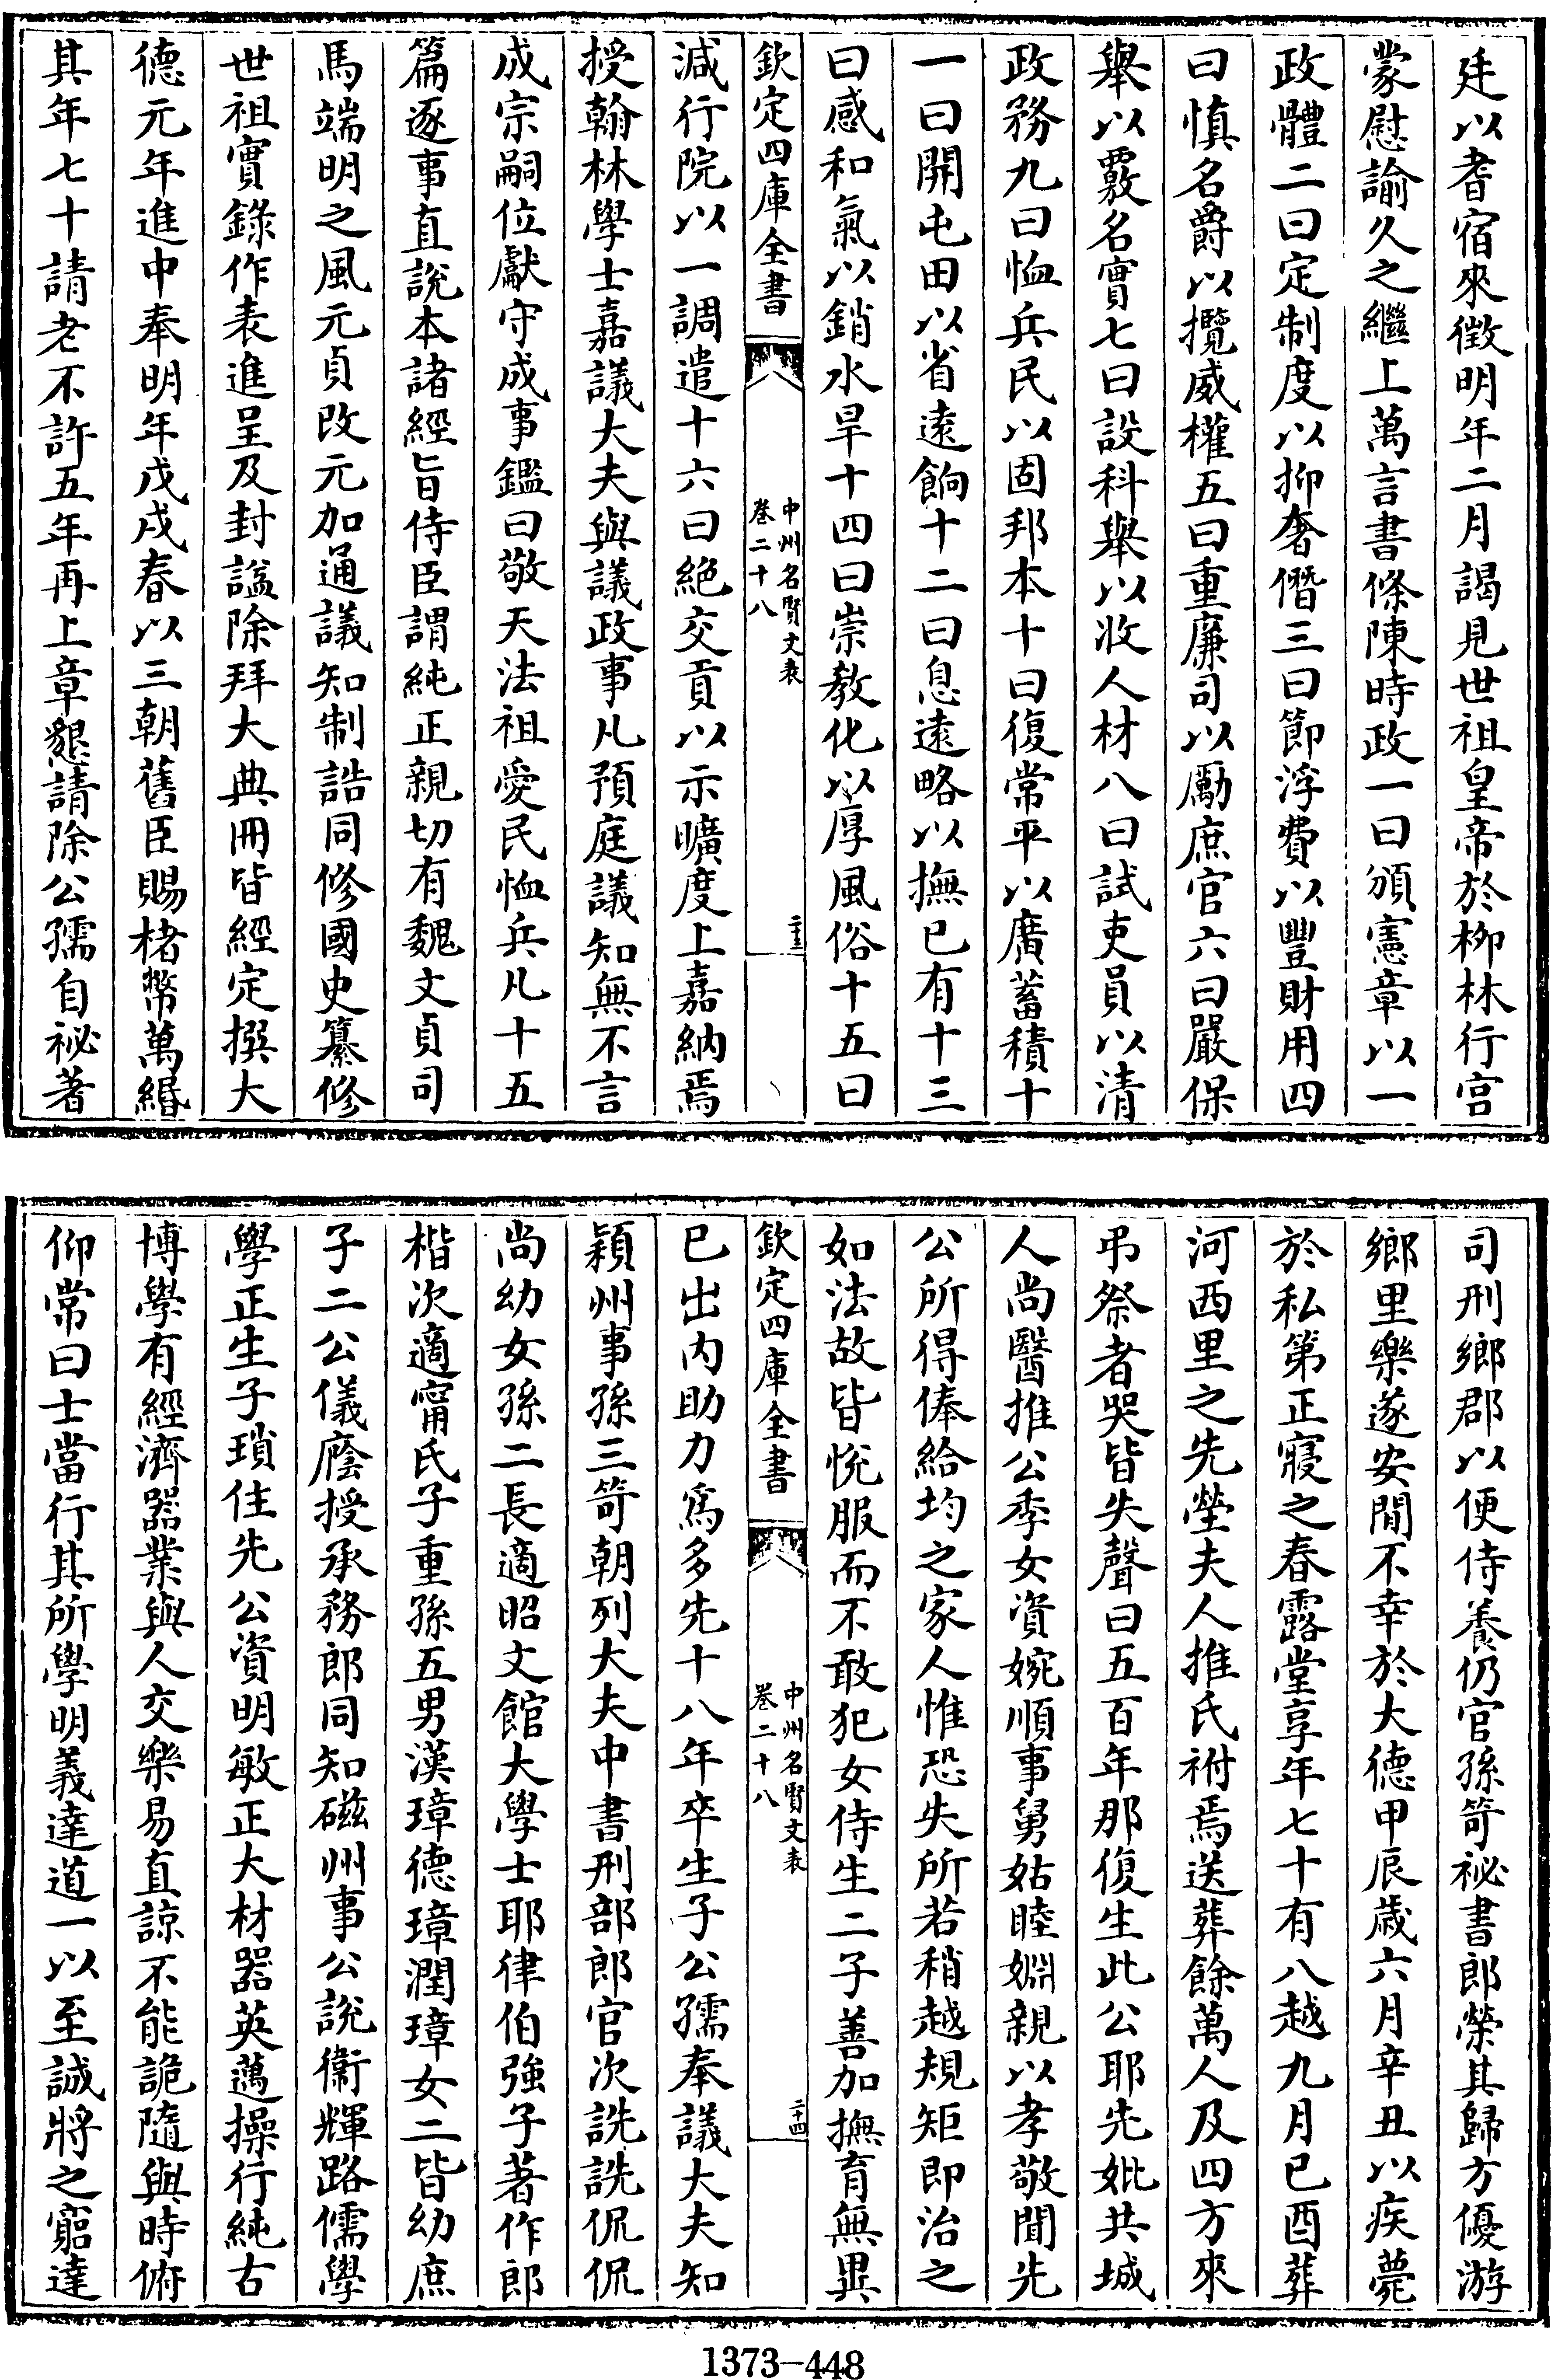 廷以耆宿來徴明年二月謁見世祖皇帝於柳林行宫
蒙慰諭久之繼上萬言書條陳時政一曰頒憲章以一
政體二曰定制度以抑奢僭三曰節浮費以豐財用四
曰慎名爵以攬威權五曰重廉司以勵庶官六曰嚴保
舉以覈名實七曰設科舉以收人材八曰試吏員以清
政務九曰恤兵民以固邦本十曰復常平以廣蓄積十
一曰開屯田以省遠餉十二曰息逺略以撫已有十三
曰感和氣以銷水旱十四曰崇教化以厚風俗十五曰
欽定四庫全書
中州名賢文表
卷二十八
二十三
減行院以一調遣十六曰絶交貢以示曠度上嘉納焉
授翰林學士嘉議大夫與議政事凡預庭議知無不言
成宗嗣位獻守成事鑑曰敬天法祖愛民恤兵凡十五
篇逐事直說本諸經旨侍臣謂純正親切有魏文貞司
馬端明之風元貞改元加通議知制誥同修國史纂修
世祖實錄作表進呈及封諡除拜大典冊皆經定撰大
德元年進中奉明年戊戌春以三朝舊臣賜楮幣萬緡
其年七十請老不許五年再上章懇請除公孺自祕著
司刑鄉郡以便侍養仍官孫笴祕書郎榮其歸方優游
鄉里樂遂安閒不幸於大德甲辰歲六月辛丑以疾薨
於私第正寢之春露堂享年七十有八越九月己酉葬
河西里之先塋夫人推氏祔焉送葬餘萬人及四方來
弔祭者哭皆失聲曰五百年那復生此公耶先妣共城
人尚醫推公季女資婉順事舅姑睦婣親以孝敬聞先
公所得俸給均之家人惟恐失所若稍越規矩即治之
如法故皆悅服而不敢犯女侍生二子善加撫育無異
欽定四庫全書
中州名賢文表
卷二十八
二十四
已出内助力為多先十八年卒生子公孺奉議大夫知
潁州事孫三笴朝列大夫中書刑部郎官次詵詵侃侃
尚幼女孫二長適昭文館大學士耶律伯強子著作郎
楷次適甯氏子重孫五男漢璋德璋潤璋女二皆幼庶
子二公儀廕授承務郎同知磁州事公說衞輝路儒學
學正生子瑣住先公資明敏正大材器英邁操行純古
博學有經濟器業與人交樂易直諒不能詭隨與時俯
仰常曰士當行其所學明義達道一以至誠將之窮達
1373-448